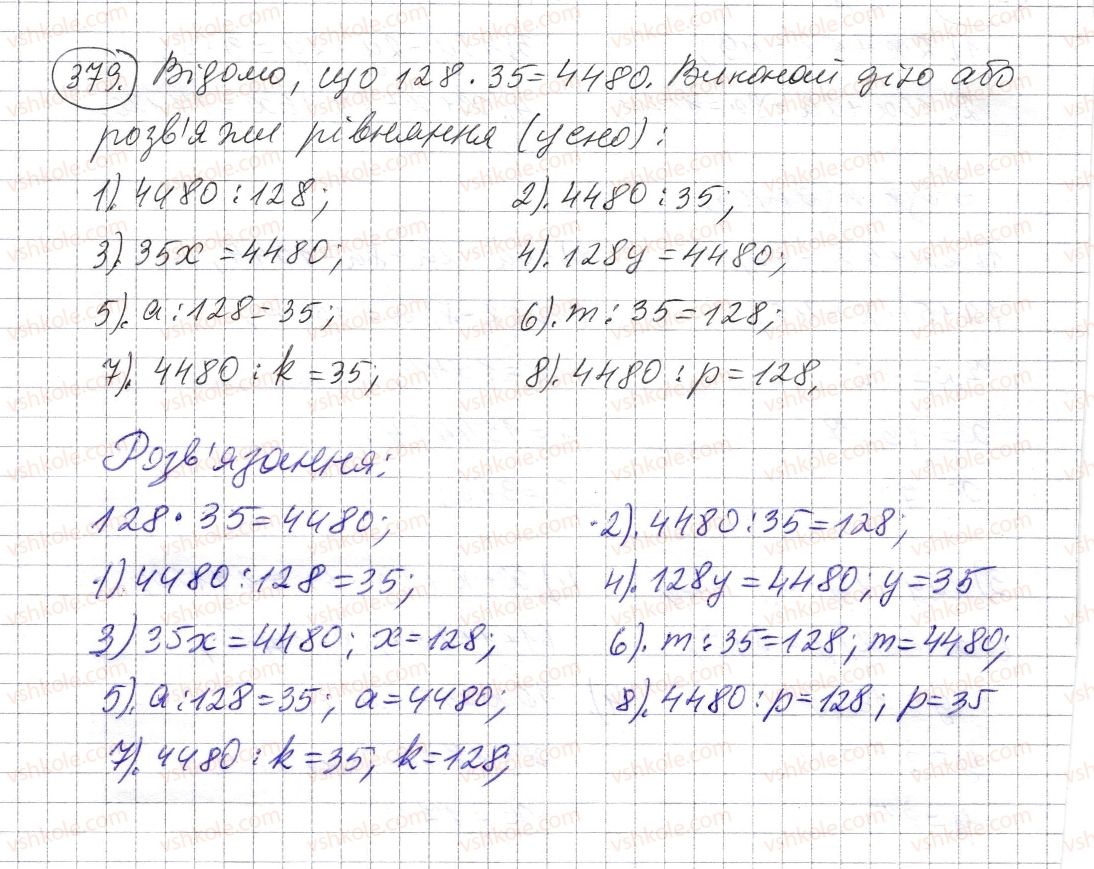 379. Відомо, що 128 · 35 = 4480. Виконай дію або
розв'яжи рівняння (усно):
1). 4480 : 128; 2). 4480 : 35;
3). 35x = 4480; 4). 128y = 4480;
5). a : 128 = 35; 6). m : 35 = 128;
7). 4480 : k = 35; 8). 4480 : p = 128.
Розв'язання:
128 · 35 = 4480; 2). 4480 : 35 = 128;
1). 4480 : 128 = 35; 4). 128y = 4480; y = 35
3) 35x = 4480; x = 128; 6). m : 35 = 128; m = 4480;
5). a : 128 = 35; a = 4480; 8). 4480 : p = 128; p = 35
7). 4480 : k = 35; k = 128;
vshkole.com